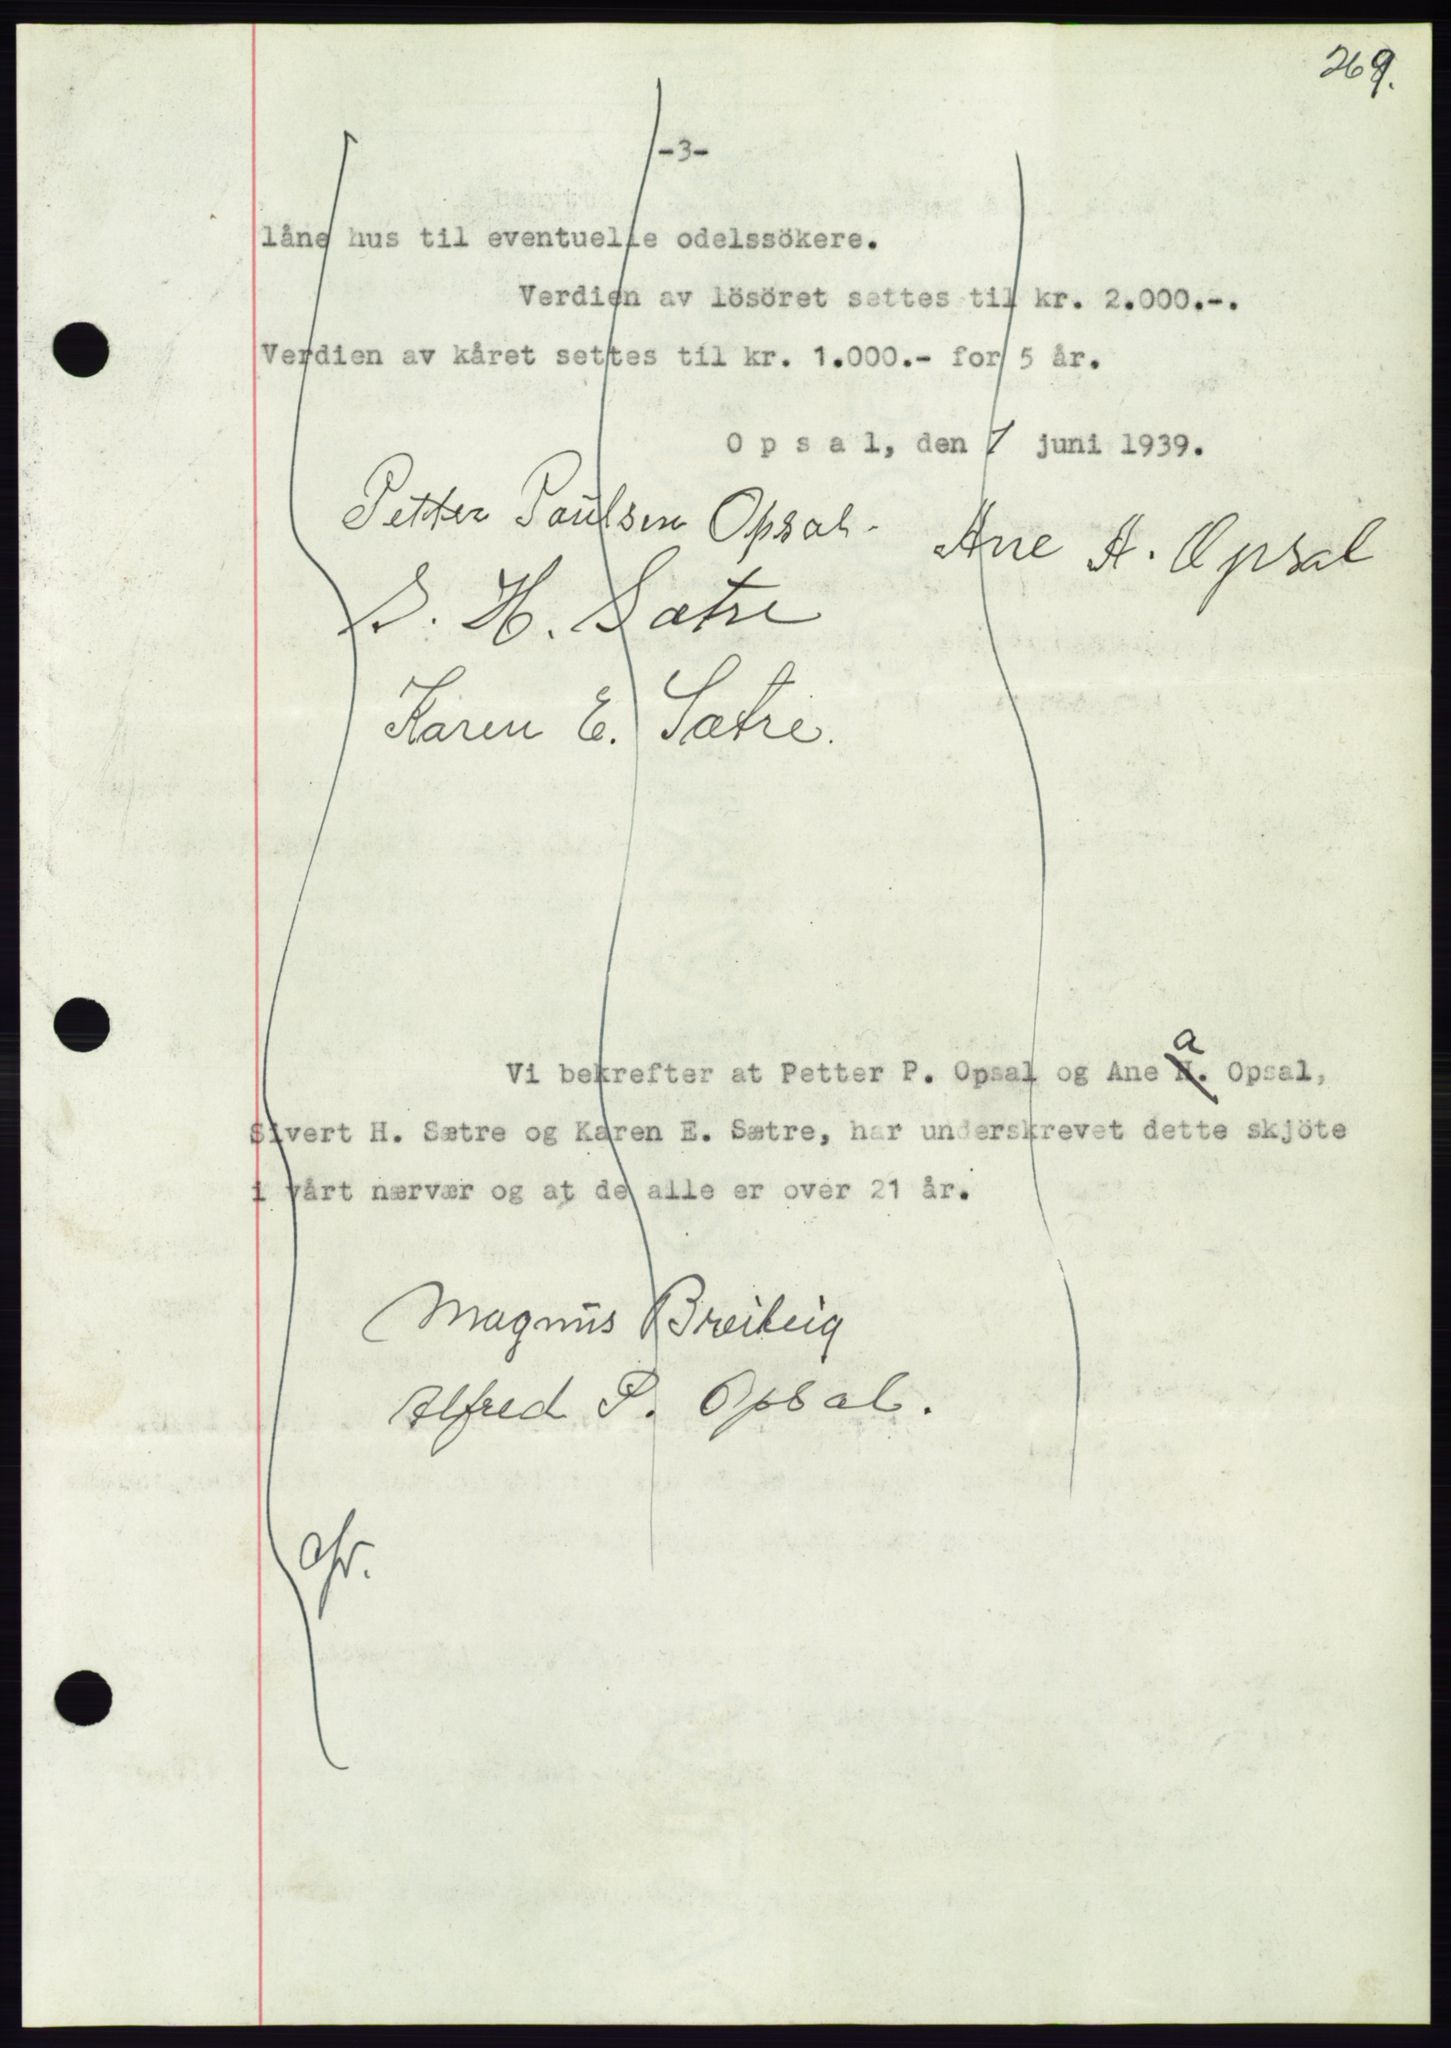 269.
-3-
låne hus til eventuelle odelssökere.
Verdien av lösöret settes til kr. 2.000.-.
Verdien av kåret settes til kr. 1.000.- for 5 år.
O p s a l, den 7 juni 1939.
Petter Paulsen Opsal. Ane A. Opsal
S. H. Sætre
Karen E. Sætre.
a
Vi bekrefter at Petter P. Opsal og Ane H. Opsal,
Sivert H. Sætre og Karen E. Sætre, har underskrevet dette skjöte
i vårt nærvær og at de alle er over 21 år.
Magnus Breiteig
Alfred P. Opsal.